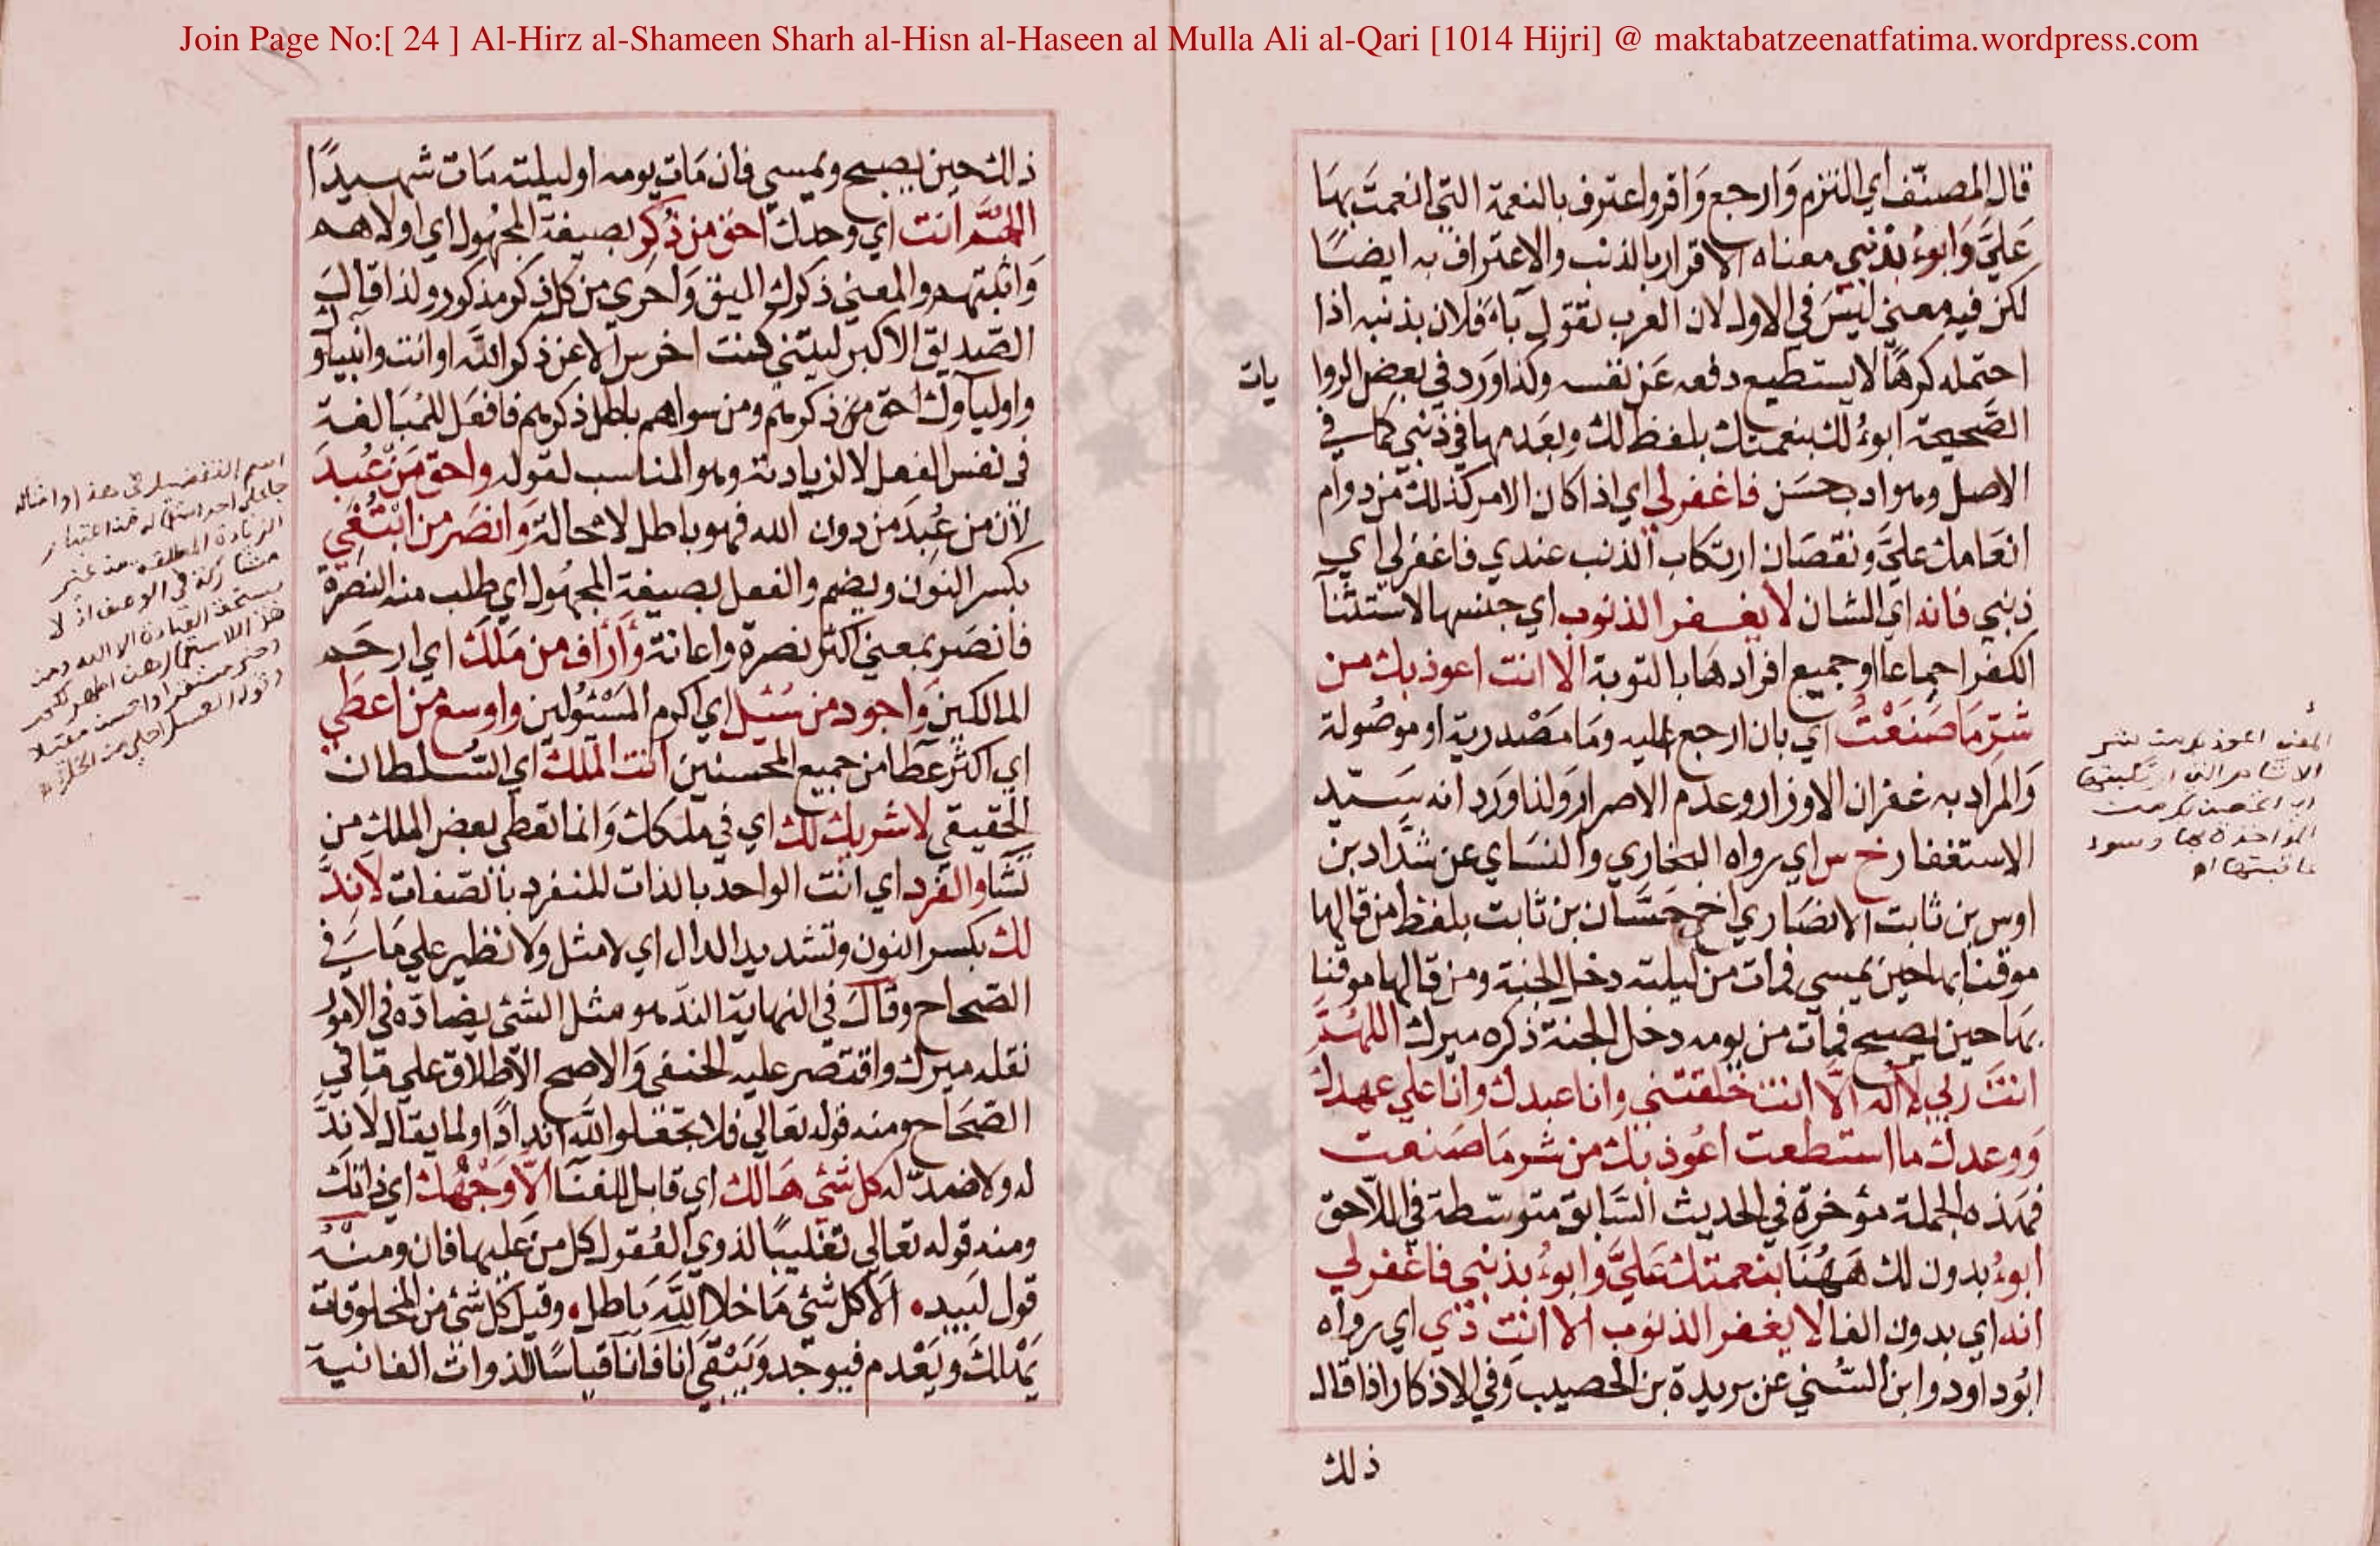 Join Page No:[ 24 ] Al-Hirz al-Shameen Sharh al-Hisn al-Haseen al Mulla Ali al-Qari [1014 Hijri] @ maktabatzeenatfatima.wordpress.com
قال المصنّف اي التزم وَارجع وَاقر واعترف بالنعمة التي انعمتَ بهَا
عَليَّ وَابوءُ بذنبي معناه الاقرار بالذنب والاعتراف به ايضًا
لكن فيه معني ليسَ في الاول لان العرب تقول بَاءَ فلان بذنبه اذا
احتمله كرهًا لا يستطيع دفعه عَن نفسه وكذا وَرد في بعض الروا
يات
الصَّحيحة ابوءُ لك بنعمتك بلفظ لك وبعَدمها في ذنبي كما في
الاصل وهو ادب حسَن فاغفرلي اي اذا كان الامر كذلك من دوام
انعَامك عليَّ ونقصَان ارتكاب الذنب عندي فاغفرلي اي
ذنبي فانه اي الشان لا يغفر الذنوب اي جنسها لاستثنا
الكفر اجماعا او جميع افرادهَا بالتوبة الا انت اعوذ بك من
شرّ مَا صَنَعْتُ اي بان ارجع اليه ومَا مَصْدرية او موصُولة
وَالمرَاد به غفران الاوزار وعدم الاصرار وَلذا وَرَد انه سَيّد
الاستغفار خ س اي رواه البخاري والنسَاي عن شدَّاد بن
اوس بن ثابت الانصَاري اخي حَسَّان بن ثابت بلفظ من قالها
موقنا بها حين يمسي فمات من ليلته دخل الجنة ومن قالها موقنا
بهَا حين يصبح فمات من يومه دخل الجنة ذكره ميرك اللهُمَّ
انتَ ربي لا اله الّا انت خلقتني وانا عبدك وانا علي عهدك
وَوعدك ما استطعت اعُوذ بك من شر مَا صَنعت
فهَذه الجملة مؤخرة في الحديث السَّابق متوسّطة في اللّاحق
ابوءُ بدون لك هَهُنَا بنعمتك عَليَّ وابوءُ بذنبي فاغفرلي
انه اي بدون الفا لا يغفر الذنوب الا انت دي اي رواه
ابُوداود وابن السُّني عن بريدة بن الحصيب وَفي الاذكار اذا قال
ذلك
المعنى اعوذ بك من شر
ذلك حين يصبح ويمسي فان مَات يومه او ليلته مَات شهيدًا
اللهُمَّ انت اي وحدك احَق من ذُكِر بصيغة المجهُول اي اولاهم
وَاثبتهم والمعني ذكرك اليق وَاحري من كل ذكر مذكور ولذا قال
الصّديق الاكبر ليتني كنت اخرس الا عن ذكر الله او انت وانبياؤ
واولياؤك احق من ذكرهم ومن سواهم باطل ذكرهم فافعَل للمُبَالغة
في نفس الفعل لا لزيادته وهو المناسب لقوله واحق مَن عُبِدَ
لان من عُبدَ من دون الله فهو باطل لا محالة وَانصَر من ابْتُغِي
بكسر النون ويضم والفعل بصيغة المجهُول اي طلب منه النصرة
فانصَر بمعني اكثر نصرة واعانة وَأَرْأَف من مَلَكَ اي ارحَم
المالكين وَاجود من سُئِل اي اكرم المَسْئُولين واوسع من اعطَي
اي اكثر عَطَا من جميع المحسنين انت المَلك اي السُّلطان
الحقيقي لا شريك لك اي في ملكك وَانما تعطي بعض الملك من
تَشَا والفرد اي انت الواحد بالذات المنفرد بالصّفات لا نِدَّ
لك بكسر النون وتشديد الدال اي لا مثل وَلا نظير علي مَا في
الصّحاح وقال في النهاية الندّ هو مثل الشئ يضادّه في الامُور
نقله ميرك واقتصر عليه الحنفي وَالاصح الاطلاق علي مَا في
الصّحَاح ومنه قوله تعَالي فلا تجعَلوا لله اندادًا ولما يقال لا نِدَّ
له ولا ضدّ له كل شئ هَالك اي قابل للفنَا الّا وَجْهُك اي ذاتك
ومنه قوله تعَالي تغليبًا لذوي العُقول كل من عَليها فان ومنهُ
قول لَبيد الَا كل شئ مَا خلا اللهَ بَاطل وقيل كل شئ من المخلوقات
يَهْلكَ ويَعْدم فيوجَد وَيَبْقَي انا فانا قياسًا للذوات الفانية